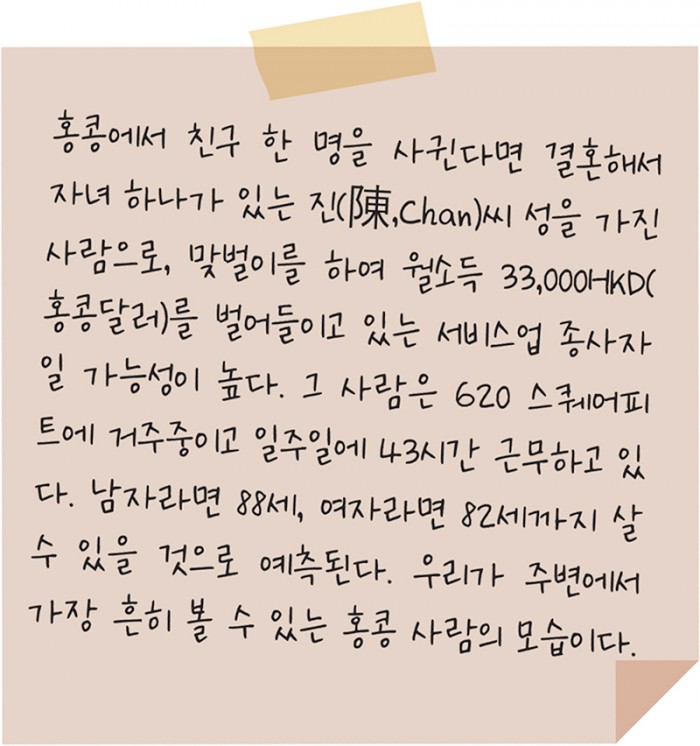 홍콩에서 친구 한 명을 사귄다면 결혼해서
자녀 하나가 있는 진(陳,Chan)씨 성을 가진
사람으로, 맞벌이를 하여 월소득 33,000HKD(
홍콩달러)를 벌어들이고 있는 서비스업 종사자
일 가능성이 높다. 그 사람은 620 스퀘어피
트에 거주중이고 일주일에 43시간 근무하고 있
다. 남자라면 88세, 여자라면 82세까지 살
수 있을 것으로 예측된다. 우리가 주변에서
가장 흔히 볼 수 있는 홍콩 사람의 모습이다.